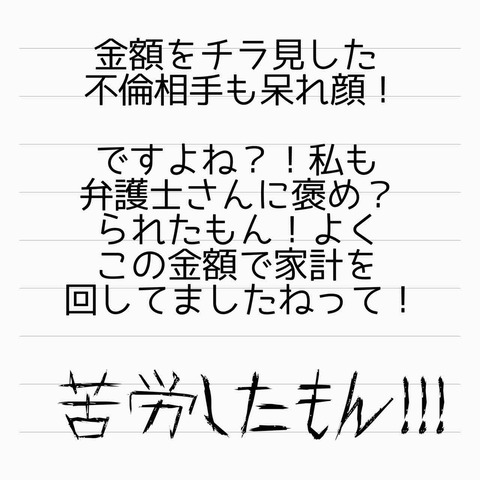 金額をチラ見した
不倫相手も呆れ顔！
ですよね？！私も
弁護士さんに褒め？
られたもん！よく
この金額で家計を
回してましたねって！
苦労したもん!!!